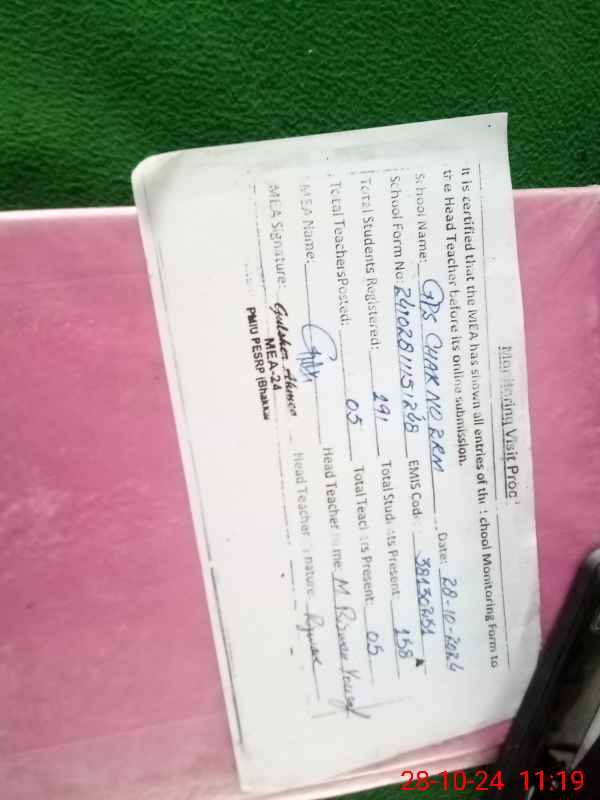 Monitoring Visit Proc
It is certified that the MEA has shown all entries of the School Monitoring Form to
the Head Teacher before its online submission.
School Name: GPS CHAK NO 2RM Date: 28-10-2024
School Form No: 24102811151268 EMIS Code: 38130251
Total Students Registered: 191 Total Students Present 158
Total Teachers Posted: 05 Total Teachers Present: 05
MEA Name: Head Teacher Name: M Rizwan Yousaf
MEA Signature: Gulsher Ahmed Head Teacher Signature:
MEA-24
PMIU PESRP (Bhakkar
28-10-24 11:19